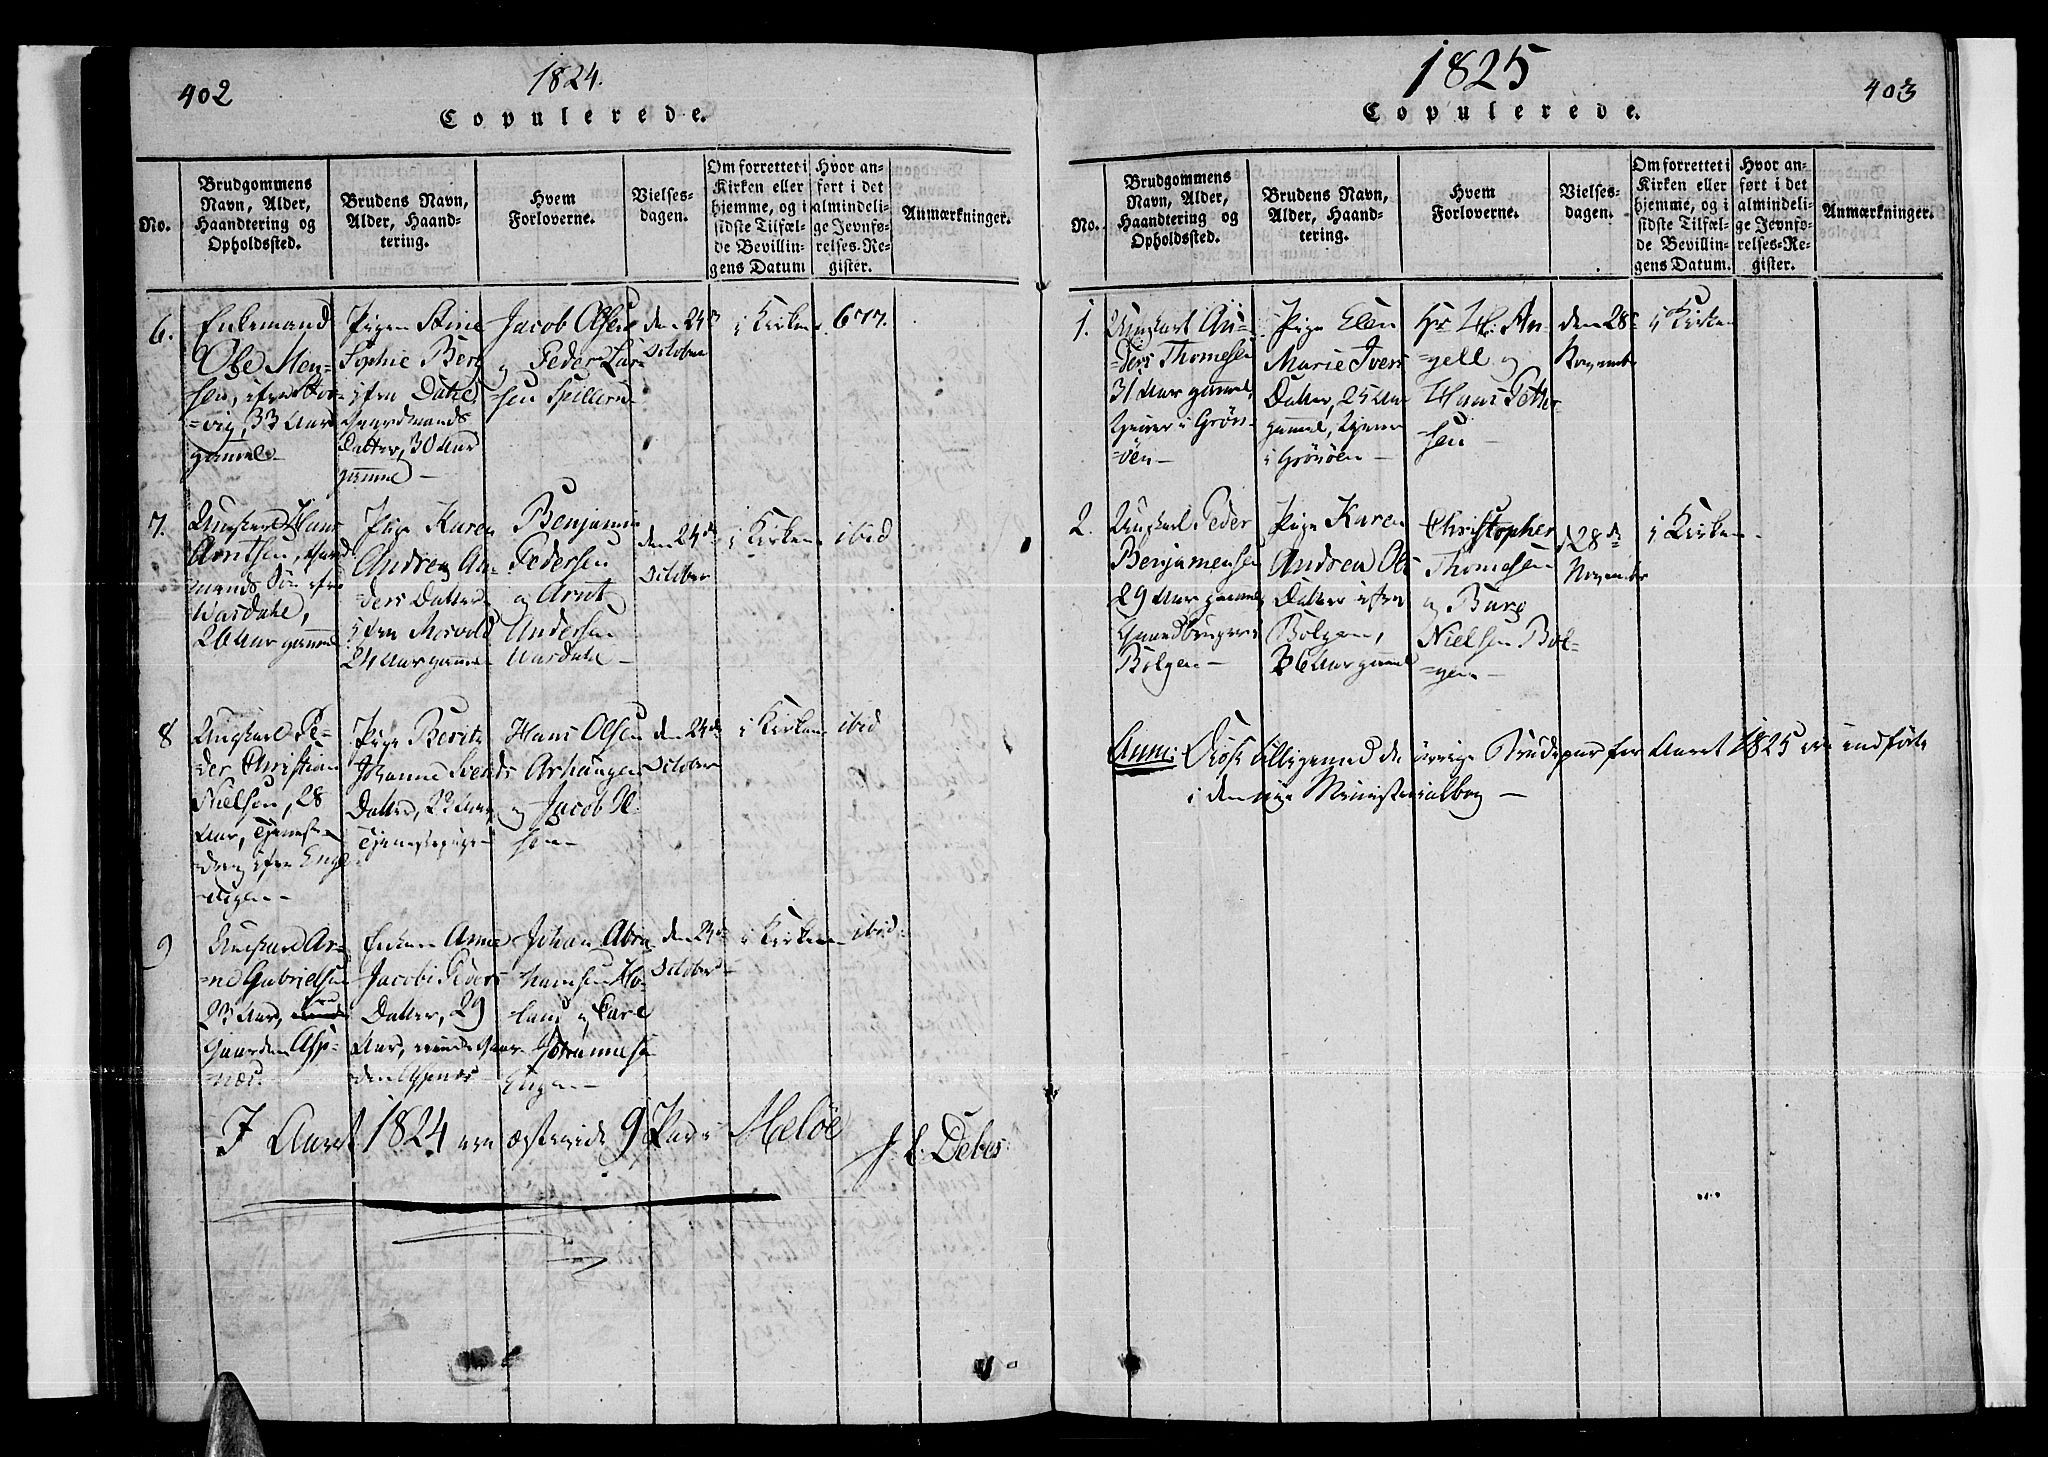 402
1824.
Copulerede.
No.
Brudgommens
Navn, Alder,
Haandtering og
Opholdssted.
Brudens Navn,
Alder, Haand-
tering.
Hvem
Forloverne.
Vielses-
dagen.
Om forrettet i
Kirken eller
hjemme, og i
sidste Tilfæl-
de Bevillin-
gens Datum
Hvor an-
ført i det
almindeli-
ge Jevnfø-
relses-Re-
gister.
Anmærkninger.
6.
Enkemand
Ole Hen-
sen,
=vig, 33 Aar
gamel
Pigen Stine
Sophie Berg
Gaardmands
Datter, 30 Aar
gammel
Jacob Olsen
og Peder Lar-
sen
den 24de
October
i Kirken
677.
7.
Ungkarl Hans
Arntsen, Gaard
mands Søn
Wasdahl,
26 Aar gammel
Pige Karen
Andrea An-
ders Datter
24 Aar gammel
Benjamin
Pedersen
og Arnt
Andersen
Wasdahl
den 24de
October
i Kirken
ibid
8
Ungkarl Pe-
der Christian
Nielsen, 28
Aar, Tjeneste-
dreng
Pige Berith
Johanne
Datter, Aar,
Tjenestepige
Hans Olsen
og Jacob
den 24de
October
i Kirken
ibid
9
Ungkarl Ar-
=ne Gabrielsen
23 Aar,
Gaarden Asp-
=næs.
Enken Anne
Jacobi Peders
Datter, 29
Aar,
Johan Abra
hamsen
og Carl
Johannesen
den 24de
October
i Kirken
ibid.
I Aaret 1824 ere ægteviede 9 Par i Meløe
J. C. Debes.
1825
403
Copulerede.
No.
Brudgommens
Navn, Alder,
Haandtering og
Opholdssted.
Brudens Navn,
Alder, Haand-
tering.
Hvem
Forloverne.
Vielses-
dagen.
Om forrettet i
Kirken eller
hjemme, og i
sidste Tilfæl-
de Bevillin-
gens Datum.
Hvor an-
ført i det
almindeli-
ge Jevnfø-
relses-Re-
gister.
Anmærkninger.
1.
Ungkarl An-
ders Thomesen
31 Aar gammel,
Tjener i Grøn-
=öen
Pige Elen
Marie Ivers
Datter, 25 Aar
gammel, Tjener
i Grönöen
Hr H: An-
=gell og
Hans Petter
sen
den 28de
November
i Kirken
2.
Ungkarl Peder
Benjamensen
29 Aar gammel
Gaardbruger
Bolgen
Pige Karen
Andrea Ols
Datter
Bolgen,
36 Aar gammel
Christopher
Thomesen
og Burg
Nielsen Bol-
=gen
d 28de
November
i Kirken
Anm: Disse tilligemed de øvrige Brudepar for Aaret 1825 ere indførte
i den nye Ministerialbog